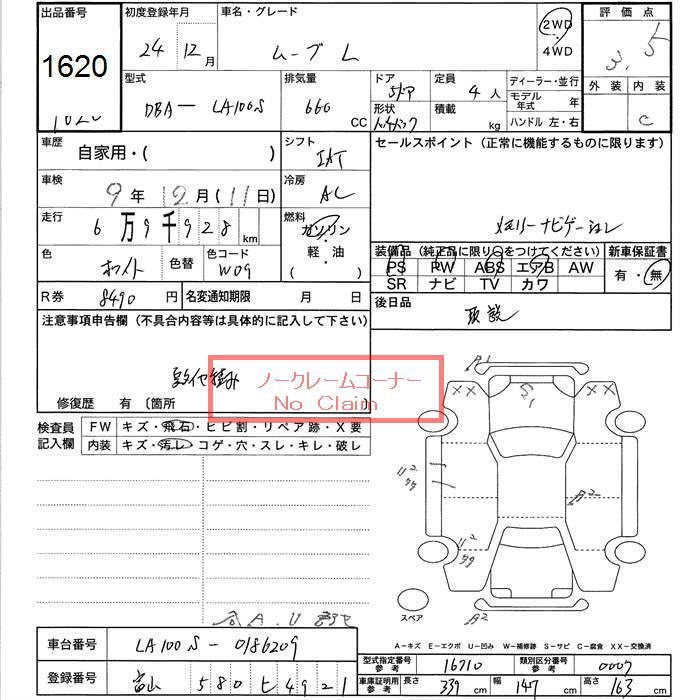 出品番号
1620
初度登録年月
24年 12月
車名・グレード
ムーブ L
2WD
・
4WD
評価点
3.5
外装 内装
C
型式
DBA— LA100S
排気量
660 CC
ドア
5ドア
形状
ハッチバック
定員
4人
積載
kg
ディーラー・並行
モデル年式 年
ハンドル 左・右
車歴
自家用・( )
シフト
IAT
セールスポイント(正常に機能するものに限ります)
メモリーナビゲーション
車検
9年 12月(11日)
冷房
AC
走行
6万9千928km
燃料
ガソリン
・
軽・油
( )
色
ホワイト
色替
色コード
W09
装備品(純正品に限り〇をつけてください)
PS PW ABS エアB AW
SR ナビ TV カワ
新車保証書
有・無
R券 8490円
名変通知期限 月 日
後日品
取説
注意事項申告欄(不具合内容等は具体的に記入して下さい)
ノークレームコーナー
No Claim
修復歴 有 〔箇所 〕
検査員記入欄
FW キズ・飛石・ヒビ割・リペア跡・X要
内装 キズ・汚レ・コゲ・穴・スレ・キレ・破レ
A1
XX
XX
A2
U2
U2
A2
スペア
A-キズ E-エクボ U-凹み W-補修跡 S-サビ C-腐食 XX-交換済
車台番号 LA100S-0186209
登録番号 富山 580 ヒ 4921
型式指定番号 参考 16710
類別区分番号 参考 0007
車庫証明用 参考 長さ 339cm 幅 147cm 高さ 163cm